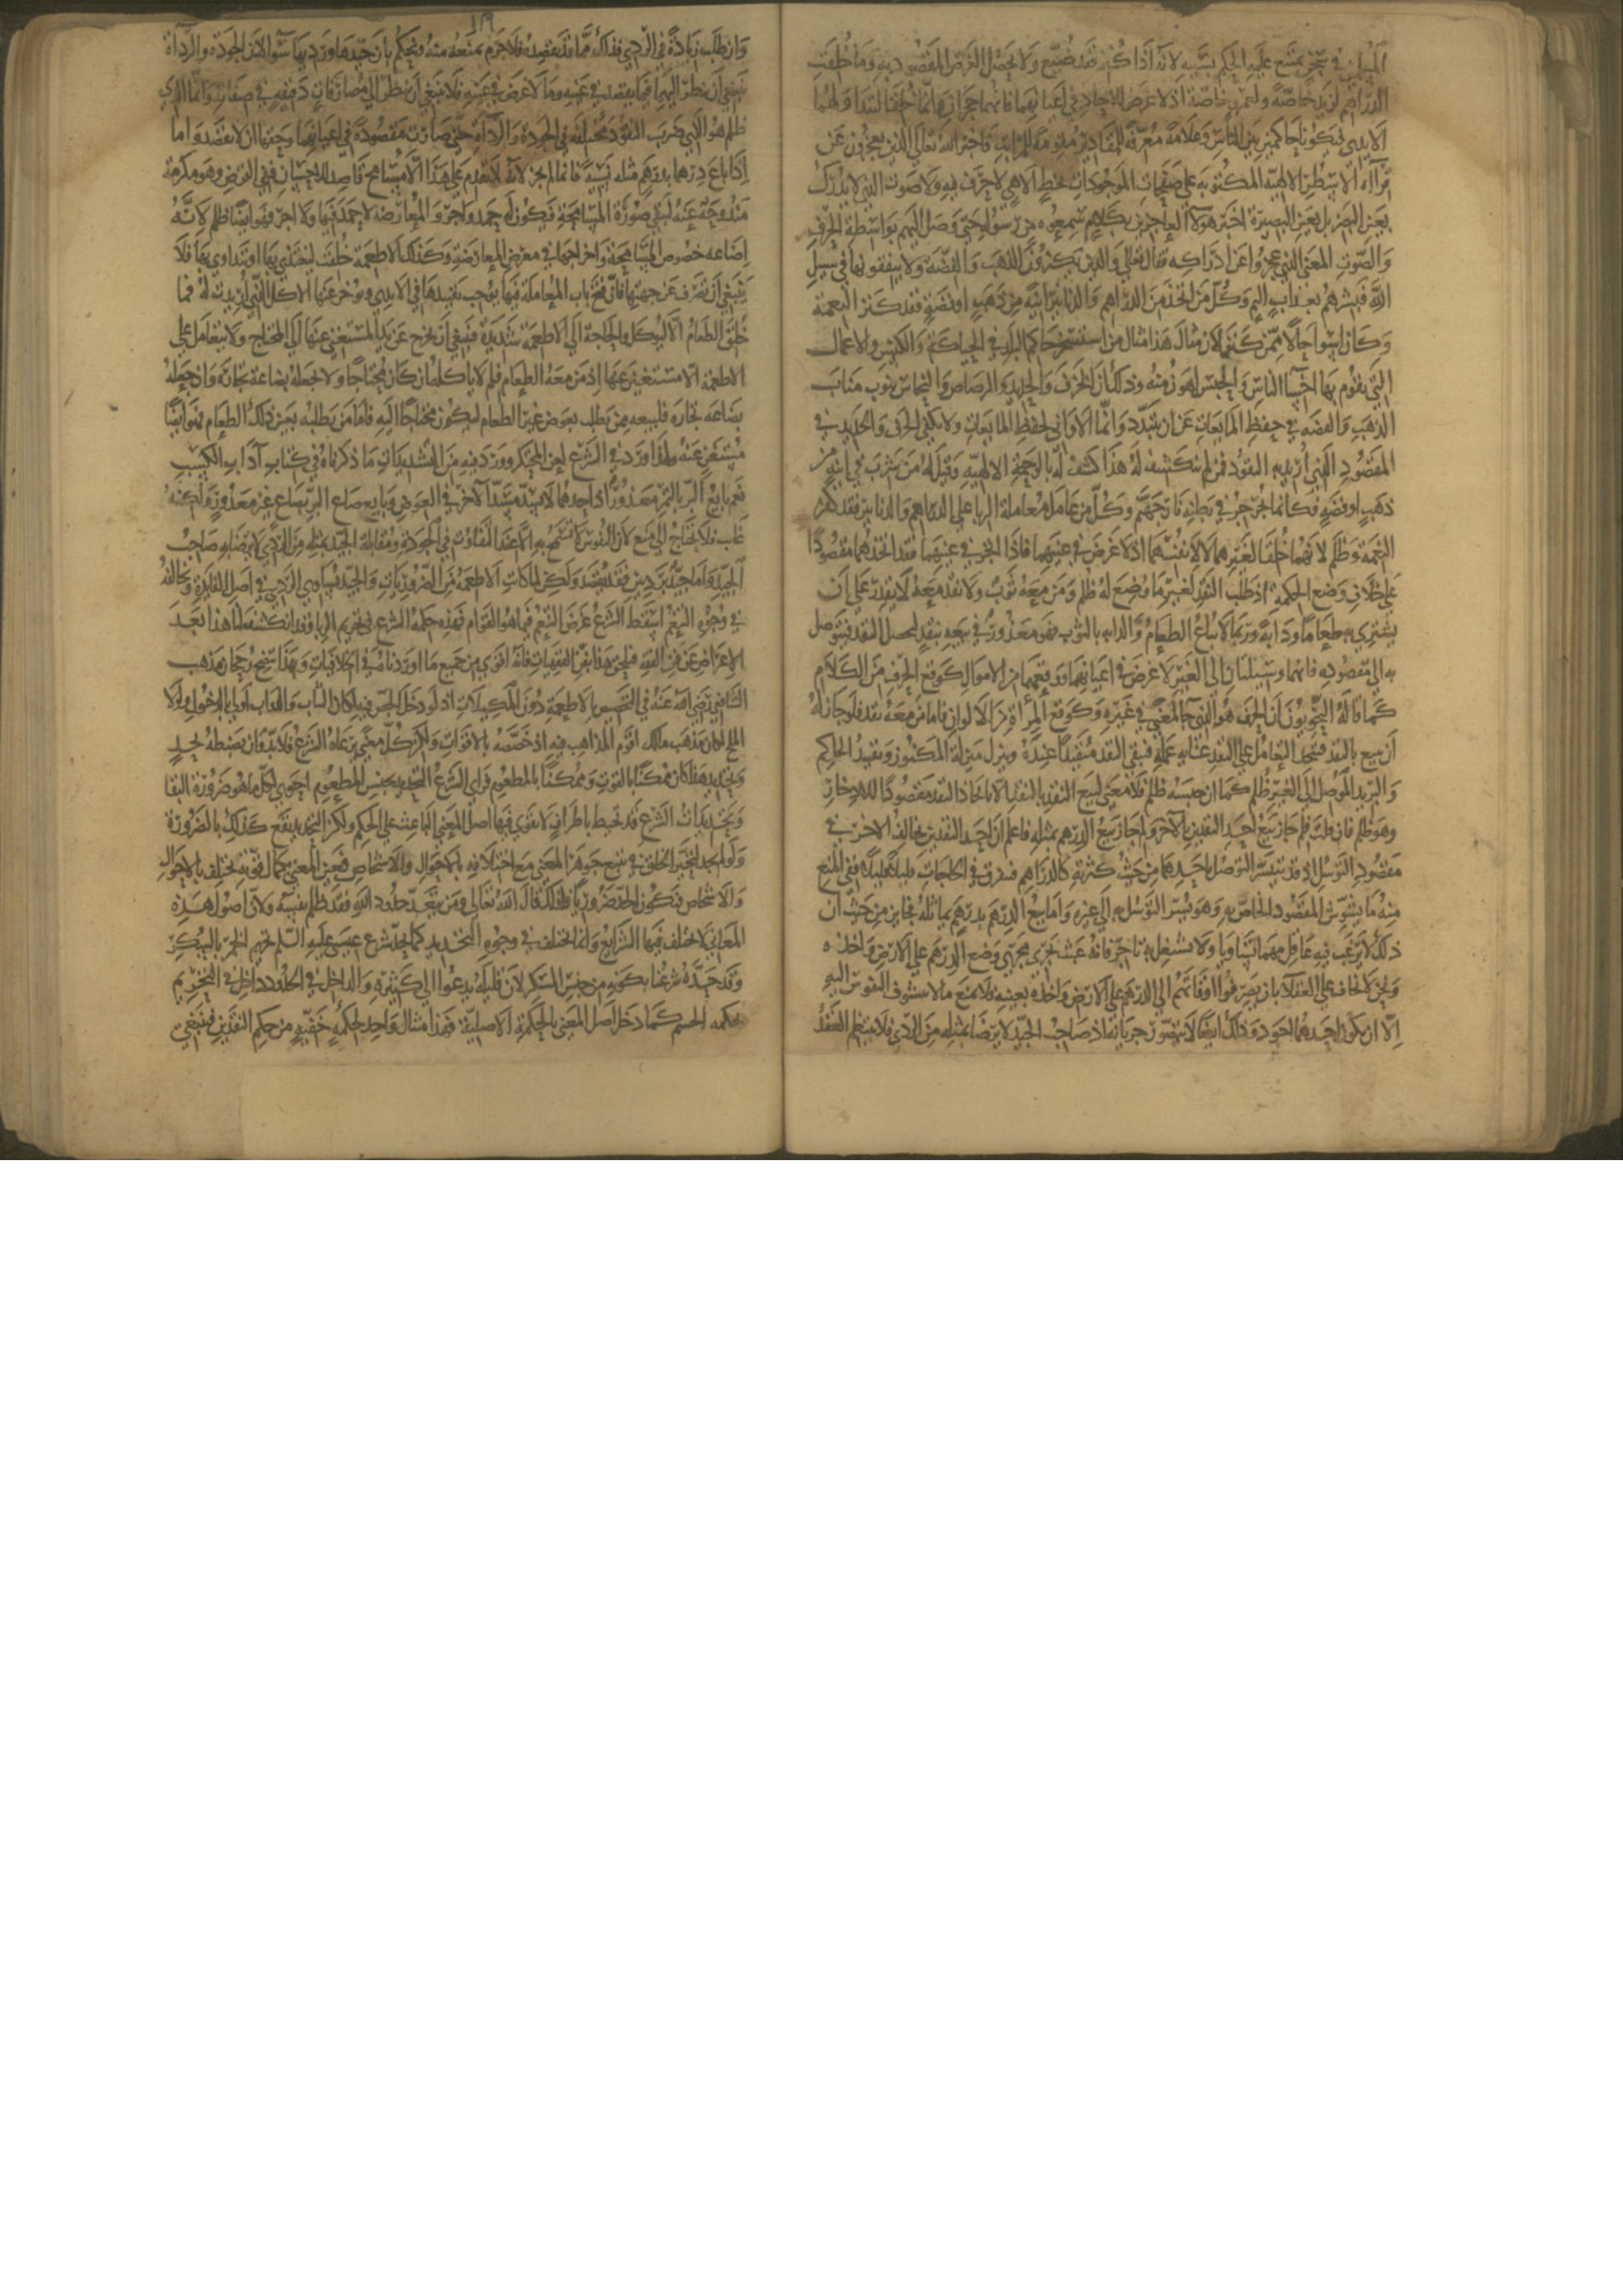 المسلمين في سجن يمتنع عليه الحكم بسببه لانه اذا كنز فقد ضيع الحكم ولا يحصل الغرض المقصود به وما خلقت
الدراهم لزيد خاصة ولعمرو خاصة اذ لا غرض للآحاد في اعيانهما فانهما حجران وانما خلقا لتتداولهما
الايدي فيكونا حاكمين بين الناس وعلامة معرفة للمقادير مقومة للمراتب فاخبر الله تعالى الذين يعجزون عن
قراءة الاسطر الالهية المكتوبة على صفحات الموجودات بخط الاهي لا حرف فيه ولا صوت الذي لا يدرك
بعين البصر بل بعين البصيرة اخبر هولاء العاجزين بكلام سمعوه من رسوله حتى وصل اليهم بواسطة الحرف
والصوت المعنى الذي عجزوا عن ادراكه فقال تعالى والذين يكنزون الذهب والفضة ولا ينفقونها في سبيل
الله فبشرهم بعذاب اليم وكل من اتخذ من الدراهم والدنانير انية من ذهب او فضة فقد كفر النعمة
وكان اسوا حالا ممن كنز لان مثال هذا مثال من استسخر حاكم البلد في الحياكة والكنس والاعمال
التي يقوم بها اخساء الناس والحبس اهون منه وذلك ان الخزف والحديد والرصاص والنحاس ينوب مناب
الذهب والفضة في حفظ المايعات عن ان تتبدد وانما الاواني لحفظ المايعات ولا يكفي الخزف والحديد في
المقصود الذي اريد به النقود فمن لم ينكشف له هذا كشف له بالترجمة الالهية وقيل له من شرب في انية من
ذهب او فضة فكانما يجرجر في بطنه نار جهنم وكل من عامل معاملة الربا على الدراهم والدنانير فقد كفر
النعمة وظلم لانهما خلقا لغيرهما لا لانفسهما اذ لا غرض في عينهما فاذا اتجر في عينهما فقد اتخذهما مقصودا
على خلاف وضع الحكمة اذ طلب النقد لغير ما وضع له ظلم ومن معه ثوب ولا نقد معه لا يقدر على ان
يشتري به طعاما ودابة وربما لا يباع الطعام والدابه بالثوب فهو معذور في بيعه بنقد ليحصل النقد فيتوصل
به الى مقصوده فانهما وسيلتان الى الغير لا غرض في اعيانهما وموقعهما من الاموال كموقع الحرف من الكلام
كما قاله النحويون ان الحرف هو الذي جا لمعنى في غيره وكموقع المرأة من الالوان فاما من معه نقد فلو جاز له
ان يبيع بالنقد فيتخذ التعامل على النقد غاية عمله فيبقى النقد مقيدا عنده وينزل منزلة المكنوز وتقييد الحاكم
والبريد الموصل الى الغير ظلم كما ان حبسه ظلم فلا معنى لبيع النقد بالنقد الا باتخاذ النقد مقصودا للادخار
وهو ظلم فان قلت فلم جاز بيع احد النقدين بالآخر ولم جاز بيع الدرهم بمثله فاعلم ان احد النقدين يخالف الاخر في
مقصود التوسل اذ قد يتيسر التوصل باحدهما من حيث كثرته كالدراهم فتفرق في الحاجات قليلا قليلا ففي المنع
منه ما يشوش المقصود الخاص به وهو تيسر التوسل به الى غيره واما بيع الدرهم بدرهم يماثله فجايز من حيث ان
ذلك لا يرغب فيه عاقل مهما تساويا ولا يشتغل به تاجر فانه عبث يجري مجرى وضع الدرهم على الارض واخذه
ونحن لا نخاف على العقلاء ان يصرفوا اوقاتهم الى الدرهم على الارض واخذه بعينه فلا نمنع مما لا تتشوف النفوس اليه
الا ان يكون احدهما اجود وذلك ايضا لا يتصور جريانه اذ صاحب الجيد لا يرضا بمثله من الردي فلا ينتظم العقد
١١٩
وان طلب زيادة في الردي فذلك مما قد يقصده فلا جرم نمنعه منه ونحكم بان جيدها ورديها سوا لان الجودة والرداءة
ينبغي ان ينظر اليهما فيما يقصد في عينه وما لا غرض في عينه فلا ينبغي ان ينظر الى مضافات دقيقه في صفاته وانما الذي
ظلم هو الذي ضرب النقود مختلفة في الجودة والرداءة حتى صارت مقصودة في اعيانهما وحقها ان لا تقصد واما
اذا باع درهما بدرهم مثله نسية فانما لم يجز لانه لا يقدم على هذا الا مسامح قاصد للاحسان ففي القرض وهو مكرمة
مندوحة عنه لتبقى صورة المسامحة فيكون له حمد واجر والمعاوضة لا حمد فيها ولا اجر فهو ايضا ظلم لانه
اضاعه خصوص المسامحة واخراجها في معرض المعاوضة وكذلك الاطعمة خلقت ليتغذى بها او يتداوى بها فلا
ينبغي ان تصرف عن جهتها فان فتح باب المعاملة فيها يوجب تقييدها في الايدي ويوخر عنها الاكل الذي اريدت له فما
خلق الطعام الا ليوكل والحاجة الى الاطعمة شديدة فينبغي ان تخرج عن يد المستغني عنها الى المحتاج ولا يتعامل على
الاطعمة الا مستغن عنها اذ من معه الطعام فلم لا ياكله ان كان محتاجا ولم يجعله بضاعة تجارة وان جعله
بضاعة تجارة فليبعه ممن يطلبه بعوض غير الطعام ليكون محتاجا اليه فاما من يطلبه بعين ذلك الطعام فهو ايضا
مستغن عنه ولهذا ورد في الشرع لعن المحتكر وورد فيه من التشديدات ما ذكرناه في كتاب آداب الكسب
نعم بايع البر بالتمر معذور اذ احدهما لا يسد مسد الآخر في الغرض وبايع صاع البر بصاع غير معذور ولكنه
عابث فلا يحتاج الى منع لان النفوس لا تسمح به الا عند التفاوت في الجودة ومقابلة الجيد بمثله من الردي لا يرضا به صاحب
الجيد واما جيد بردين فقد يقصد ولكن لما كانت الاطعمة من الضروريات والجيد يساوي الردي في اصل الفايدة ويخالفه
في وجوه التنعم اسقط الشرع غرض التنعم فيما هو القوام فهذه حكمة الشرع في تحريم الربا وقد انكشف لنا هذا بعد
الاعراض عن فن الفقه فلنلحق هذا بفن الفقهيات فانه اقوى من جميع ما اوردناه في الخلافيات وبهذا يتضح رجحان مذهب
الشافعي رضي الله عنه في التخصيص بالاطعمة دون المكيلات اذ لو دخل الجص فيه لكان الثياب والدواب اولى بالدخول ولولا
الملح لكان مذهب مالك اقوم المذاهب فيه اذ خصصه بالاقوات ولكن كل معنى يرعاه الشرع فلا بد وان يضبطه بحد
وتحديد هذا كان ممكنا بالقوت وممكنا بالمطعوم فراى الشرع التحديد بجنس المطعوم احرى لكل ما هو ضرورة البقا
وتحديدات الشرع قد تحيط باطراف لا يقوى فيها اصل المعنى الباعث على الحكم ولكن التحديد يقع كذلك بالضرورة
ولو لم يحد لتحير الخلق في تتبع جوهر المعنى مع اختلافه بالاحوال والاشخاص فعين المعنى بكمال قوته يختلف بالاحوال
والاشخاص فيكون الحد ضروريا فلذلك قال الله تعالى ومن يتعد حدود الله فقد ظلم نفسه ولان اصول هذه
المعاني لا تختلف فيها الشرايع وانما تختلف في وجوه التحديد كما يحد شرع عيسى عليه السلم تحريم الخمر بالسكر
وقد حده شرعنا بكونه من جنس المسكر لان قليله يدعوا الى كثيره والداخل في الحدود داخل في التحريم
بحكمه الحسم كما دخل اصل المعنى بالحكمة الاصلية فهذا مثال واحد لحكمة خفية من حكم النقدين فينبغي